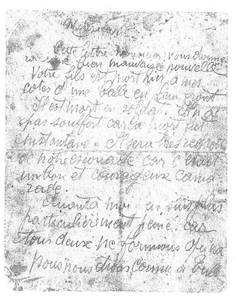 Cette lettre va vous donner
une bien mauvaise nouvelle
Votre fils est mort hier, à mes
côtés d'une balle en plein front
Il est mort en soldat. Il n'a
pas souffert car la mort fut
instantanée. Il sera très regretté
de notre car c'était
un bon et courageux cama
rade.
Quant à moi je suis plus
particulièrement peiné, car
tous deux ne formions qu'un
nous nous étions connu à